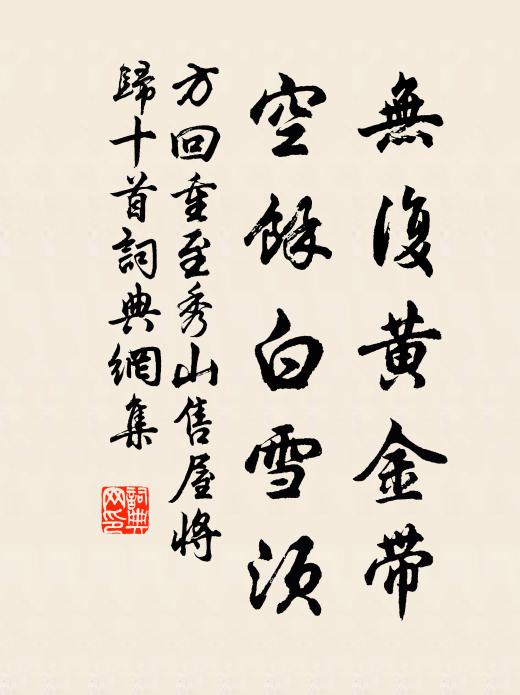 無復黄金带
空餘白雪須
方回重至秀山售屋將
歸十首詞典網集
詞典
网印